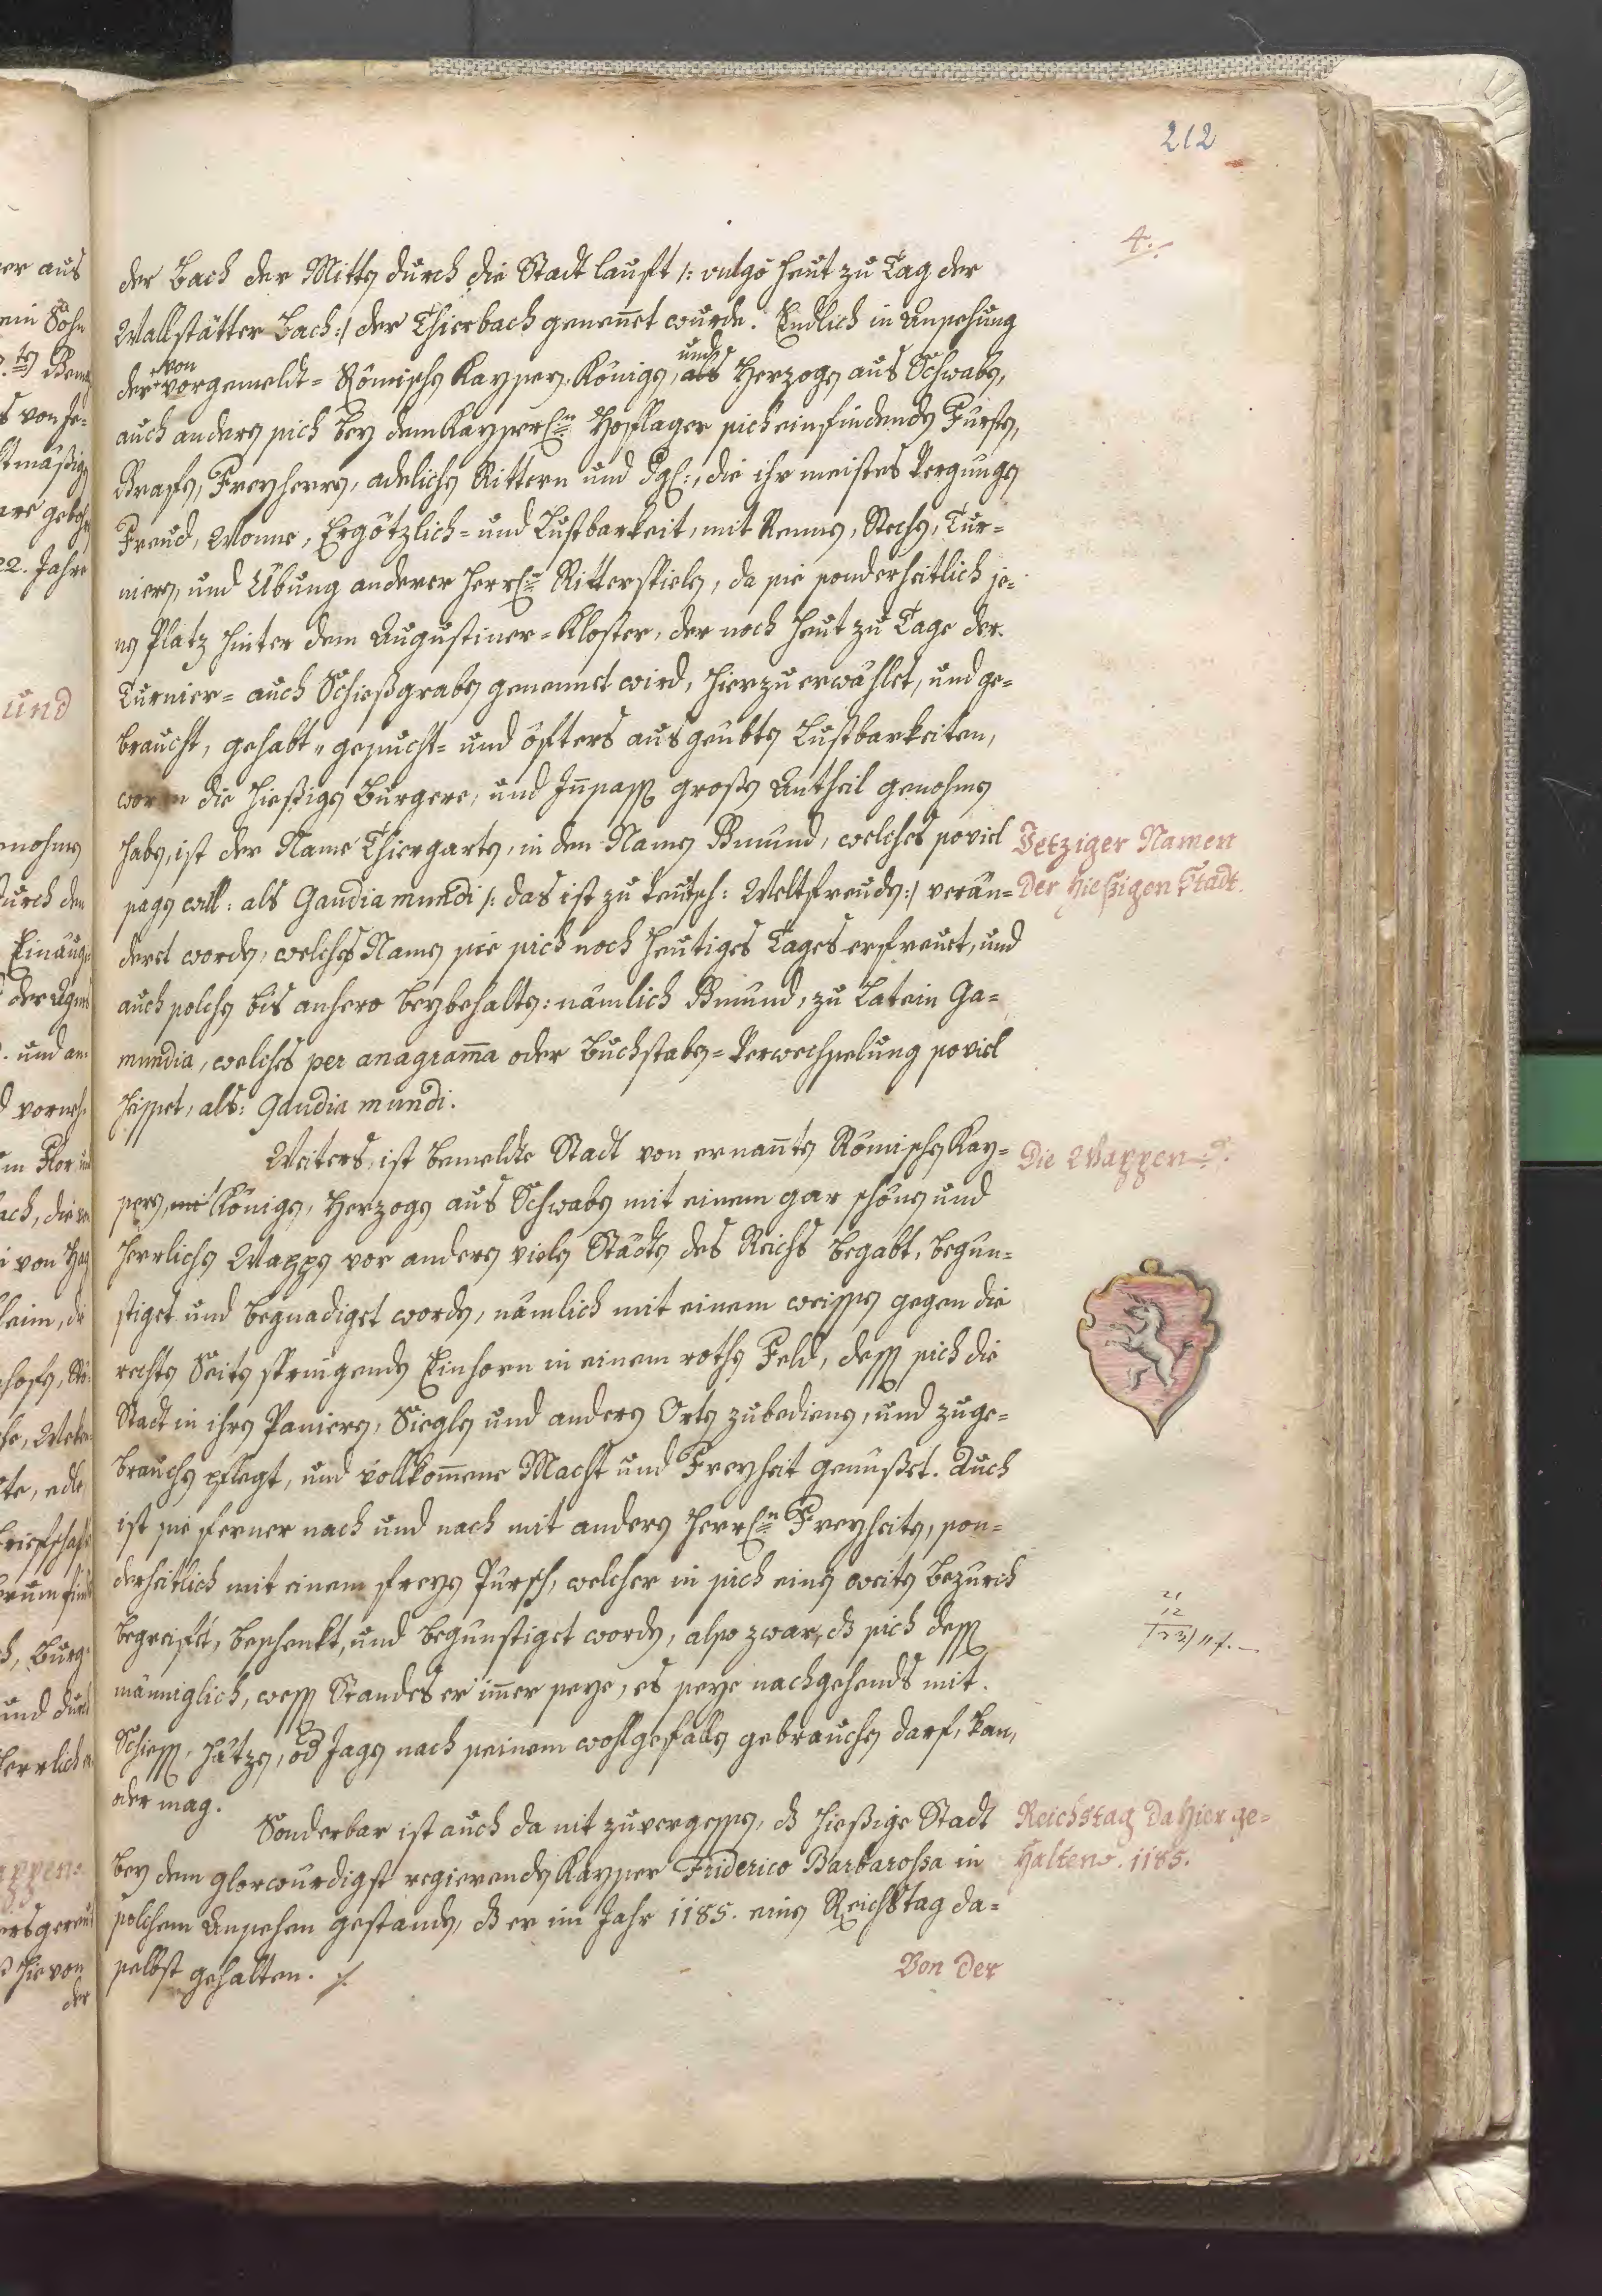 212
4.
der Bach der Mitten durch die Stadt lauft /: vulgo heut zu Tag der
Wallstätter Bach :/ der Thierbach genennet wurde. Endlich in Ansehung
der von vorgemeldt= Römischen Kaysern, Königen, und als Herzogen aus Schwaben,
auch andern sich bey dem Kayserl:n Hoflager sich einfindenden Fürsten,
Grafen, Freyherrn, adelichen Rittern und dgl:, die ihr meistes Vergnügen
Freud, Wonne, Ergötzlich= und Lustbarkeit, mit Rennen, Stechen, Tur=
nieren, und Übung anderer Herrl:n Ritterspielen, da sie sonderheitlich je=
nen Platz hinter dem Augustiner=Kloster, der noch heut zu Tage der
Turnier= auch Schießgraben genennet wird, hierzu erwählet, und ge=
braucht, gehabt= gesucht= und öfters ausgeübten Lustbarkeiten,
woran die hießigen Burgere, und Innsassen großen Antheil genohmen
haben, ist der Name Thiergarten, in den Namen Gmünd, welches soviel
sagen will: als Gaudia mundi /: das ist zu teutsch: Weltfreuden :/ verän=
Jetziger Namen
der hießigen Stadt.
dert worden, welches Namen sie sich noch heutiges Tages erfreuet, und
auch solchen bis anhero beybehalten: nämlich Gmünd, zu Latein Ga=
mundia, welches per anagrama oder Buchstaben=Verwechselung soviel
heisset, als: Gaudia mundi.
Weiters, ist bemeldte Stadt von ernannten Römischen Kay=
Die Wappen.
sern, Königen, Herzogen aus Schwaben mit einem gar schönen und
herrlichen Wappen vor andern vielen Städten des Reichs begabt, begün=
stiget und begnadiget worden, nämlich mit einem weissen gegen die
rechten Seiten springenden Einhorn in einem rothen Feld, dessen sich die
Stadt in ihren Paniern, Sieglen und andern Orten zubedienen, und zuge=
brauchen pflegt, und vollkommene Macht und Freyheit genüßet. Auch
ist sie ferner nach und nach mit andern Herrl:n Freyheiten, son=
derheitlich mit einem freyen Pürsch, welcher in sich einen weiten Bezürch
begreifet, beschenkt, und begünstiget worden, also zwar, dß sich dessen
21
12
männiglich, wessen Standes er immer seye, es seye nachgehends mit
Schiessen, Hätzen, od Jagen nach seinem wohlgefallen gebrauchen darf, kan,
oder mag.
Sonderbar ist auch da nit zuvergessen, dß hießige Stadt
Reichstag dahier ge=
halten. 1185.
bey dem glorwürdigst regierenden Kayser Friderico Barbarossa in
solchem Ansehen gestanden, dß er im Jahr 1185. einen Reichstag da=
selbst gehalten. ·/.
Von der